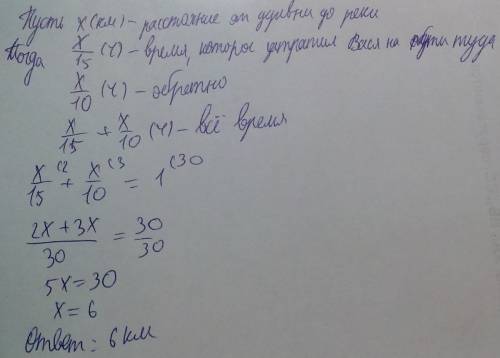 Пусть x (км) - расстояние от деревни до реки
Тогда x/15 (ч) - время, которое затратил Вася на пути туда
x/10 (ч) - обратно
x/15 + x/10 (ч) - всё время
x/15 (2 + x/10 (3 = 1 (30
2x + 3x / 30 = 30/30
5x = 30
x = 6
Ответ: 6 км